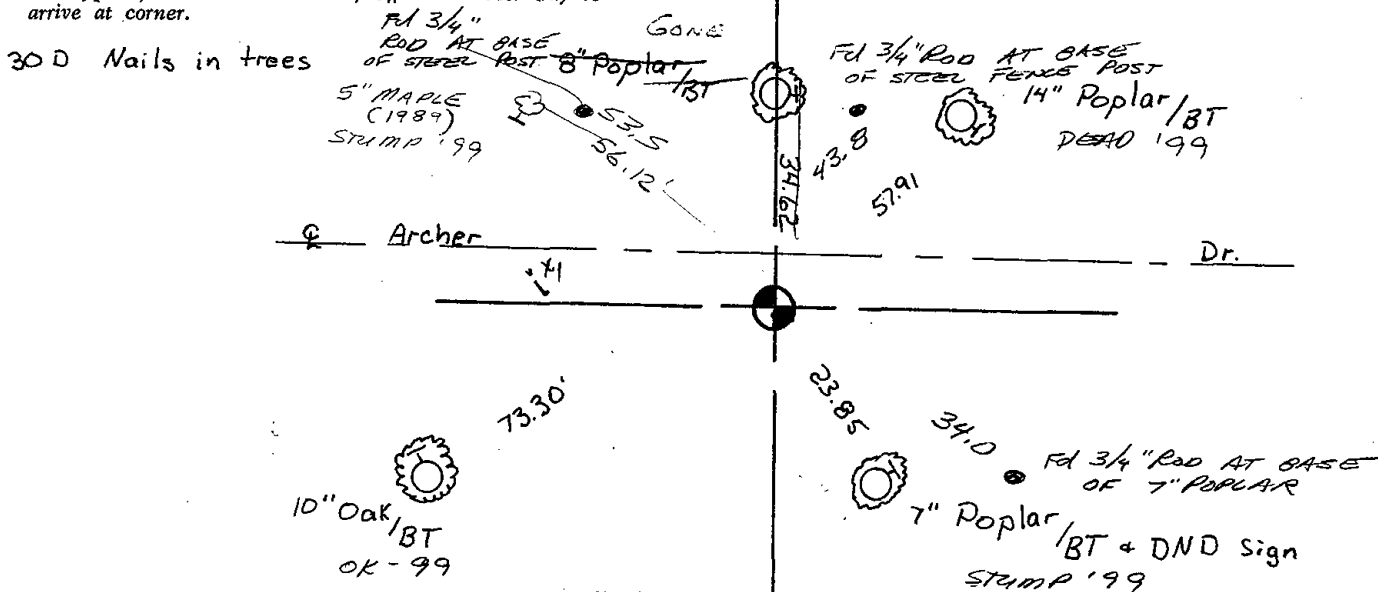 arrive at corner.
30D Nails in trees
Fd 3/4"
ROD AT BASE
OF STEEL POST
GONE
8" Poplar/BT
5" MAPLE
(1989)
STUMP '99
53.5
56.12'
34.62
Fd 3/4" ROD AT BASE
OF STEEL FENCE POST
14" Poplar/BT
DEAD '99
43.8
57.91
℄ Archer Dr.
73.30'
10" Oak/BT
OK-99
23.85
34.0
Fd 3/4" ROD AT BASE
OF 7" POPLAR
7" Poplar/BT & DND Sign
STUMP '99